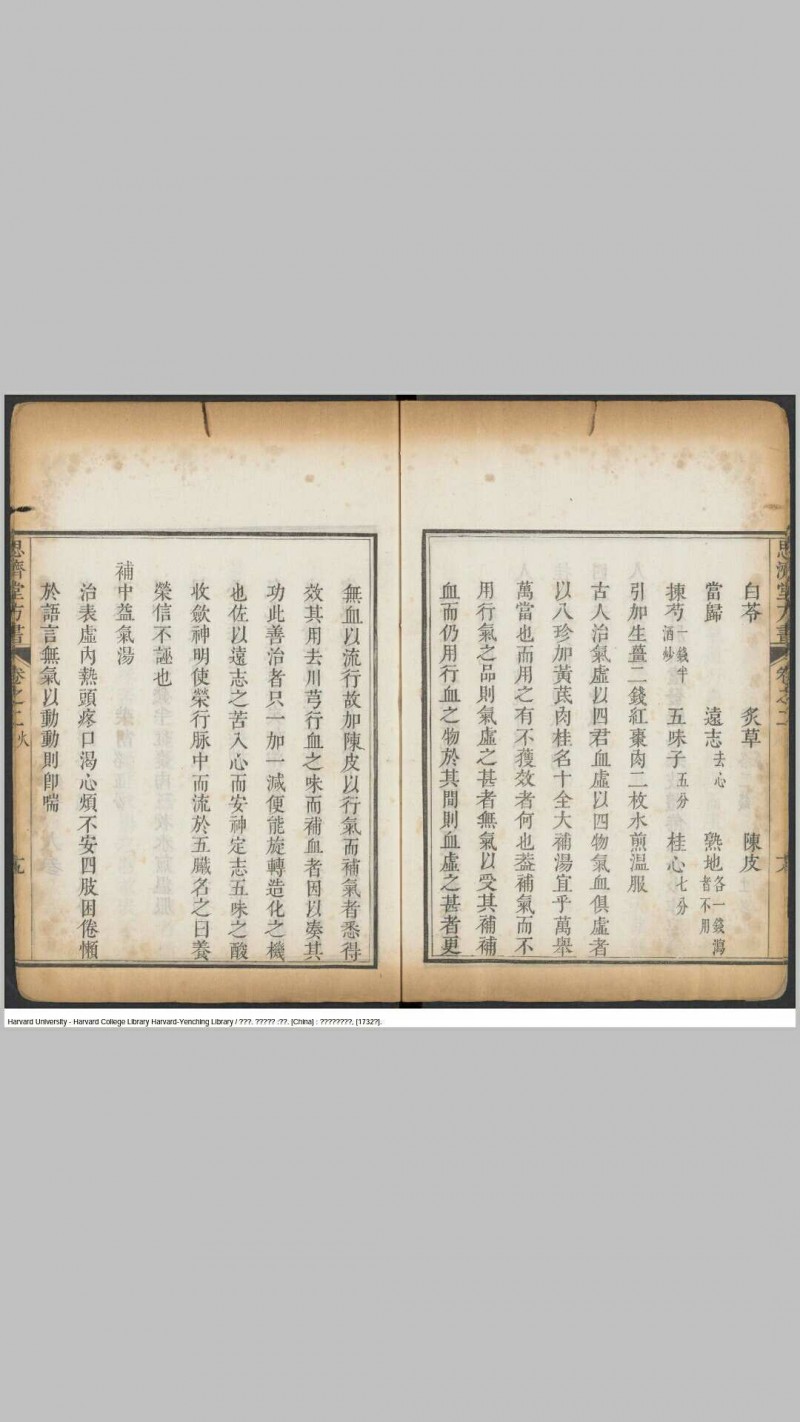 白苓 炙草 陳皮
當歸 遠志去心 熟地各一錢瀉者不用
揀芍一錢半酒炒 五味子五分 桂心七分
引加生薑二錢紅棗肉二枚水煎温服
古人治氣虛以四君血虛以四物氣血俱虛者
以八珍加黃芪肉桂名十全大補湯宜乎萬舉
萬當也而用之有不獲效者何也葢補氣而不
用行氣之品則氣虛之甚者無氣以受其補補
血而仍用行血之物於其間則血虛之甚者更
無血以流行故加陳皮以行氣而補氣者悉得
效其用去川芎行血之味而補血者因以奏其
功此善治者只一加一減便能旋轉造化之機
也佐以遠志之苦入心而安神定志五味之酸
收斂神明使榮行脉中而流於五臟名之曰養
榮信不誣也
補中益氣湯
治表虛內熱頭疼口渴心煩不安四肢困倦懶
於語言無氣以動動則卽喘
思濟堂方書 卷之二
Harvard University - Harvard College Library Harvard-Yenching Library / ???. ????? :??. [China] : ????????, [1732?].